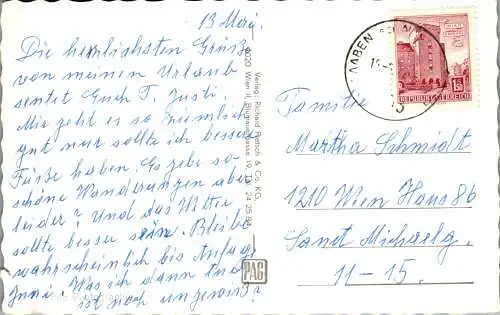 13 Mai,
Die herzlichsten Grüße
von meinen Urlaub
sentet Euch T. Justi.
Mir geht es so ziemlich
gut nur sollte ich bessere
Füße haben. Es gebe so
schöne Wanderungen aber
leider? Und das Wetter
sollte besser sein. Bleibe
wahrscheinlich bis Anfang
Juni. Was ich dann tue
ist noch ungewiß?
Verlag: Richard Pietsch & Co. KG.
1020 Wien II.
PAG
AABEN
REPUBLIK ÖSTERREICH
Familie
Martha Schmidt
1210 Wien Haus 86
Sanct Michaelg.
11-15.